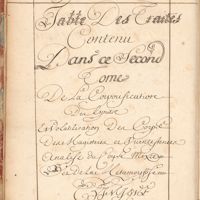 Table Des Traités
Contenu
Dans ce Second
Tome
De La Corporification
Du Esprit
et Volatilisation Du Corps
Des Magisteres et Quintessences
Analyse de
De La Metamorphose